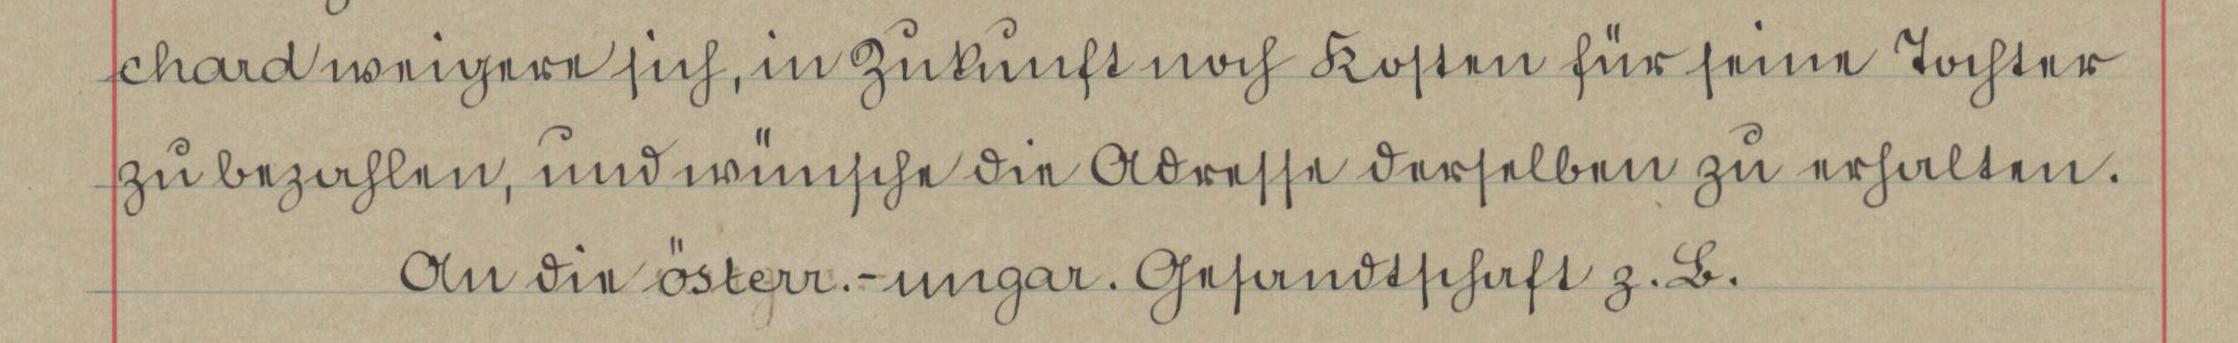 chard weigere sich, in Zukunft noch Kosten für seine Tochter
zu bezahlen, und wünsche die Adresse derselben zu erhalten.
An die österr.-ungar. Gesandtschaft z. B.